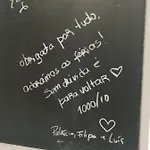 obrigada por tudo,
adorámos as férias!
Sem dúvida é
para voltar ♡
1000/10
Patrícia, Filipe e Luís
♡